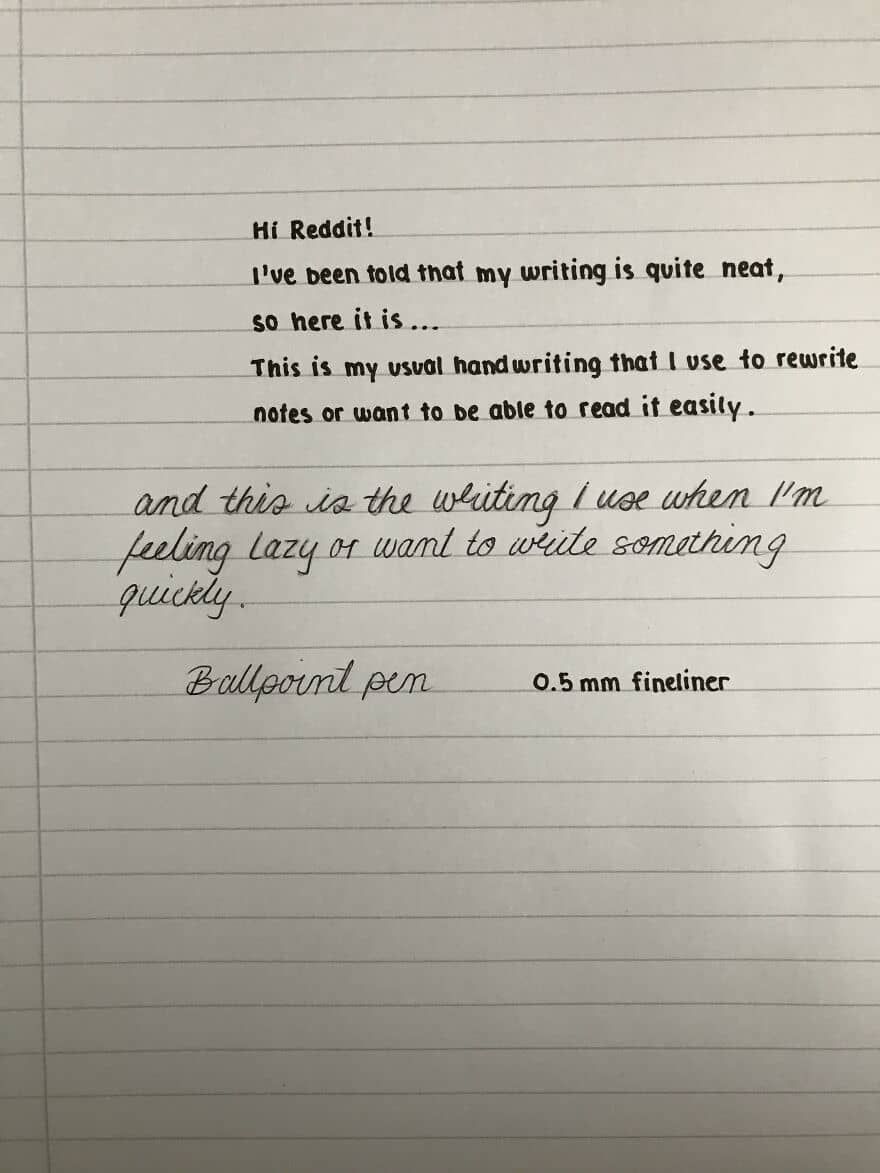 Hi Reddit!
I've been told that my writing is quite neat,
so here it is...
This is my usual handwriting that I use to rewrite
notes or want to be able to read it easily.
and this is the writing I use when I'm
feeling lazy or want to write something
quickly.
Ballpoint pen 0.5 mm fineliner